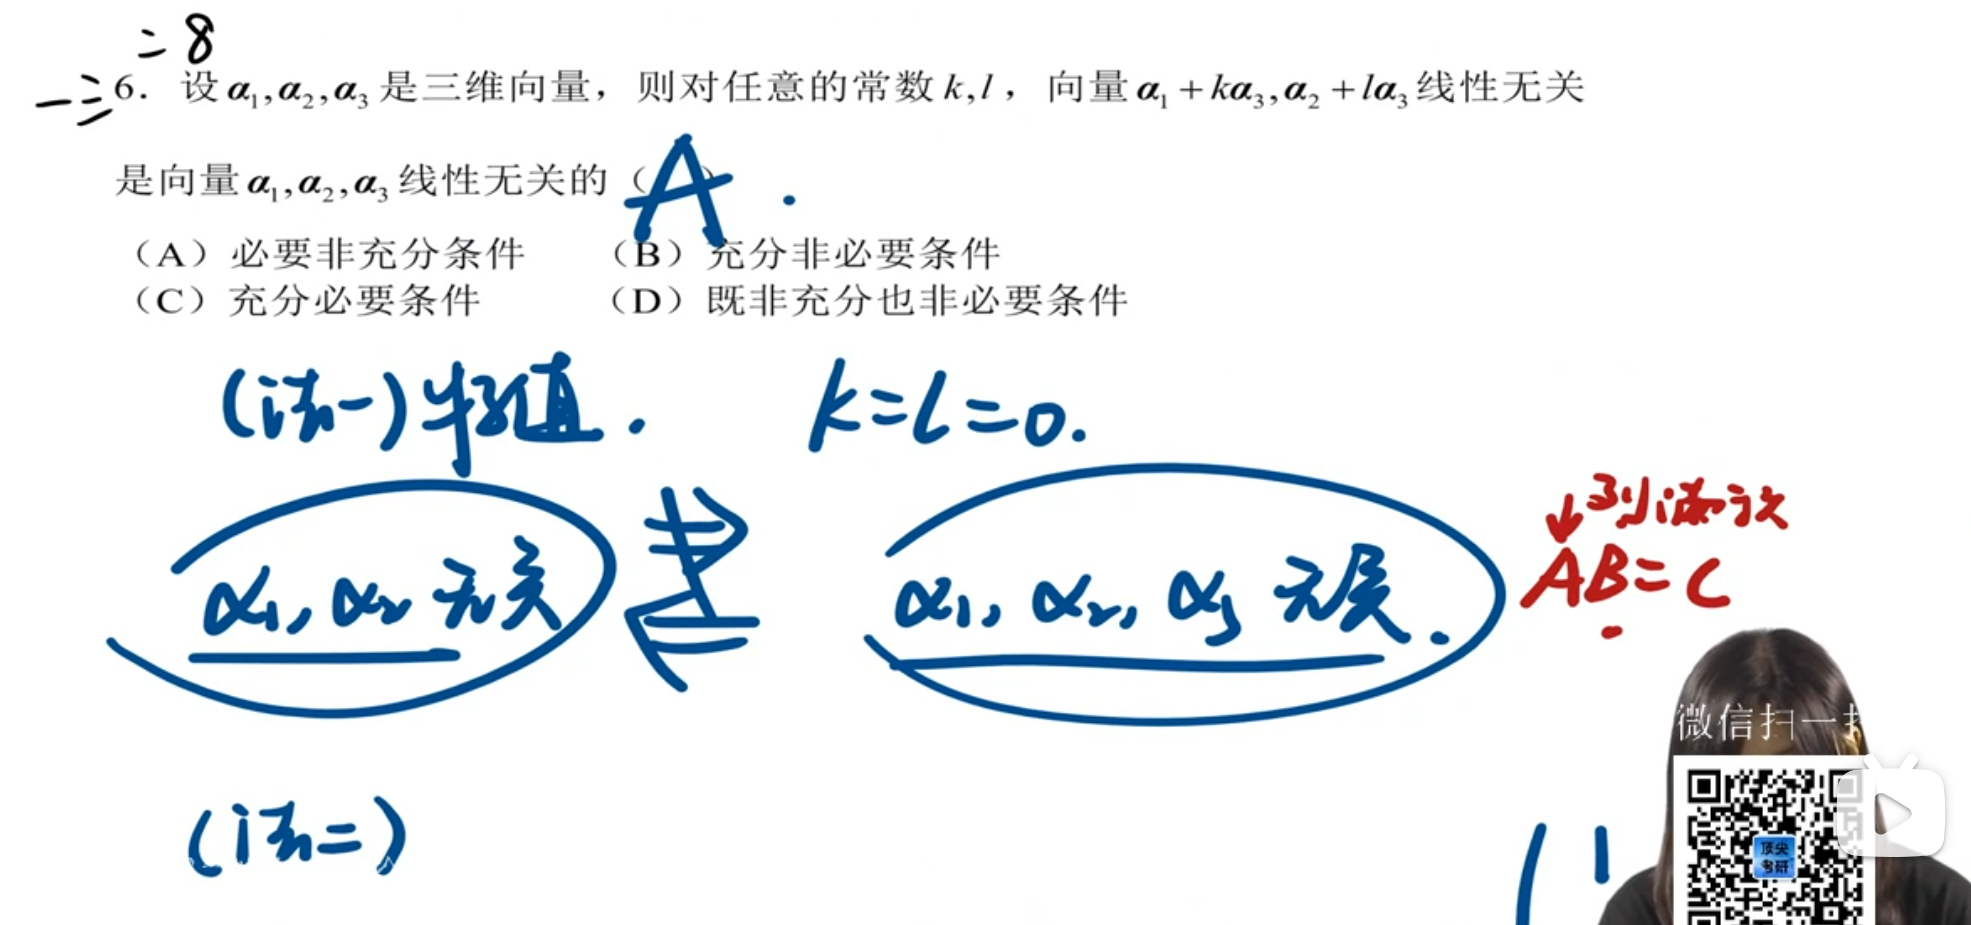 二8
一三6. 设α₁,α₂,α₃是三维向量，则对任意的常数k,l，向量α₁+kα₃,α₂+lα₃线性无关
是向量α₁,α₂,α₃线性无关的（A）.
（A）必要非充分条件 （B）充分非必要条件
（C）充分必要条件 （D）既非充分也非必要条件
(法一)特值. k=l=0.
列满秩
α₁, α₂ 无关 ⇏ ⇐ α₁, α₂, α₃ 无关. AB=C
微信扫一扫
(法二) (1
顶尖
考研